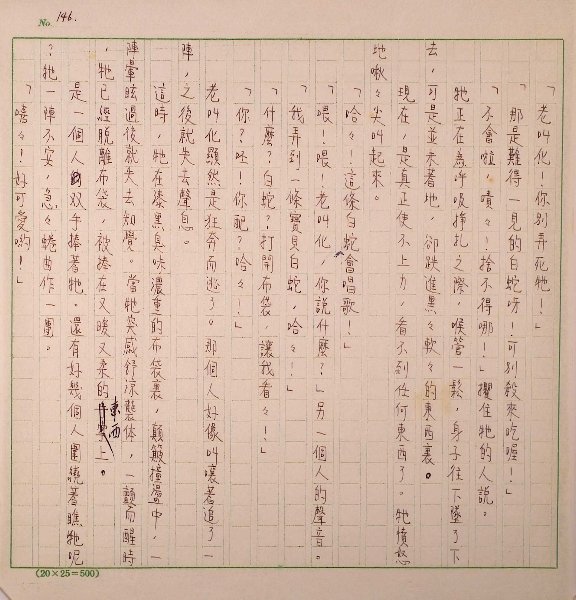 No. 146.
「老叫化!你別弄死牠!」
那是難得一見的白蛇呀!可別殺來吃喔!」
「不會啦,嘖々!捨不得哪!」攫住牠的人說。
牠正在為呼吸掙扎之際,喉管一鬆,身子往下墜了下
去,可是並未著地,卻跌進黑々軟々的東西裏。
現在,是真正使不上力,看不到任何東西了。牠憤怒
地啾々尖叫起來。
「哈々!這條白蛇會唱歌!」
「喂!喂,老叫化,你說什麼?」另一個人的聲音。
「我弄到一條寶貝白蛇,哈々!」
「什麼?白蛇?打開布袋,讓我看々!」
「你?呸!你配?哈々!」
老叫化顯然是狂奔而逃了。那個人好像叫嚷著追了一
陣,之後就失去聲息。
這時,牠在漆黑臭味濃重的布袋裏,顛簸撞盪中,一
陣暈眩過後就失去知覺。當牠突感舒涼襲体,一顫而醒時
,牠已經脫離布袋,被捲在又暖又柔的東西上。
是一個人双手捧著牠。還有好幾個人圍繞著瞧牠呢
?牠一陣不安,急々蜷曲作一團。
「嘻々!好可愛喲!」
(20×25=500)